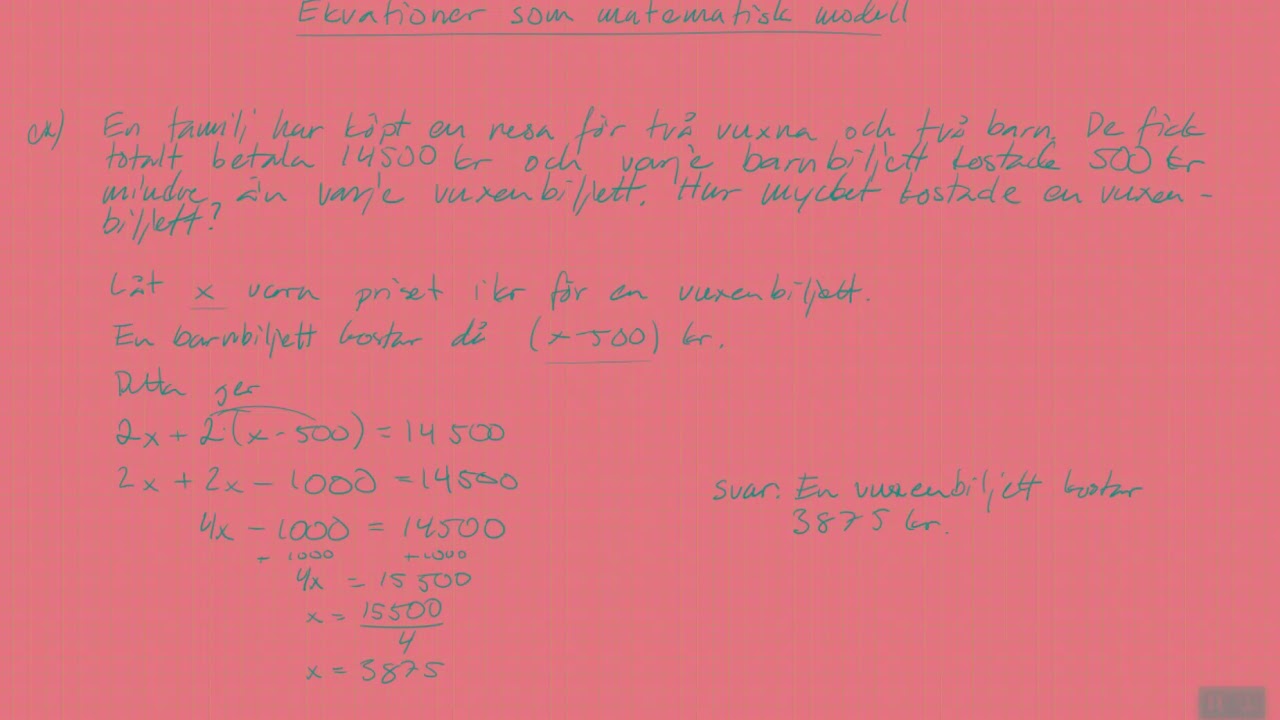 Ekvationer som matematisk modell
ex) En familj har köpt en resa för två vuxna och två barn. De fick
totalt betala 14500 kr och varje barnbiljett kostade 500 kr
mindre än varje vuxenbiljett. Hur mycket kostade en vuxen-
biljett?
Låt x vara priset i kr för en vuxenbiljett.
En barnbiljett kostar då (x-500) kr.
Detta ger
2x + 2·(x - 500) = 14 500
2x + 2x - 1000 = 14500
4x - 1000 = 14500
+ 1000 +1000
4x = 15 500
x = 15500/4
x = 3875
svar: En vuxenbiljett kostar
3875 kr.